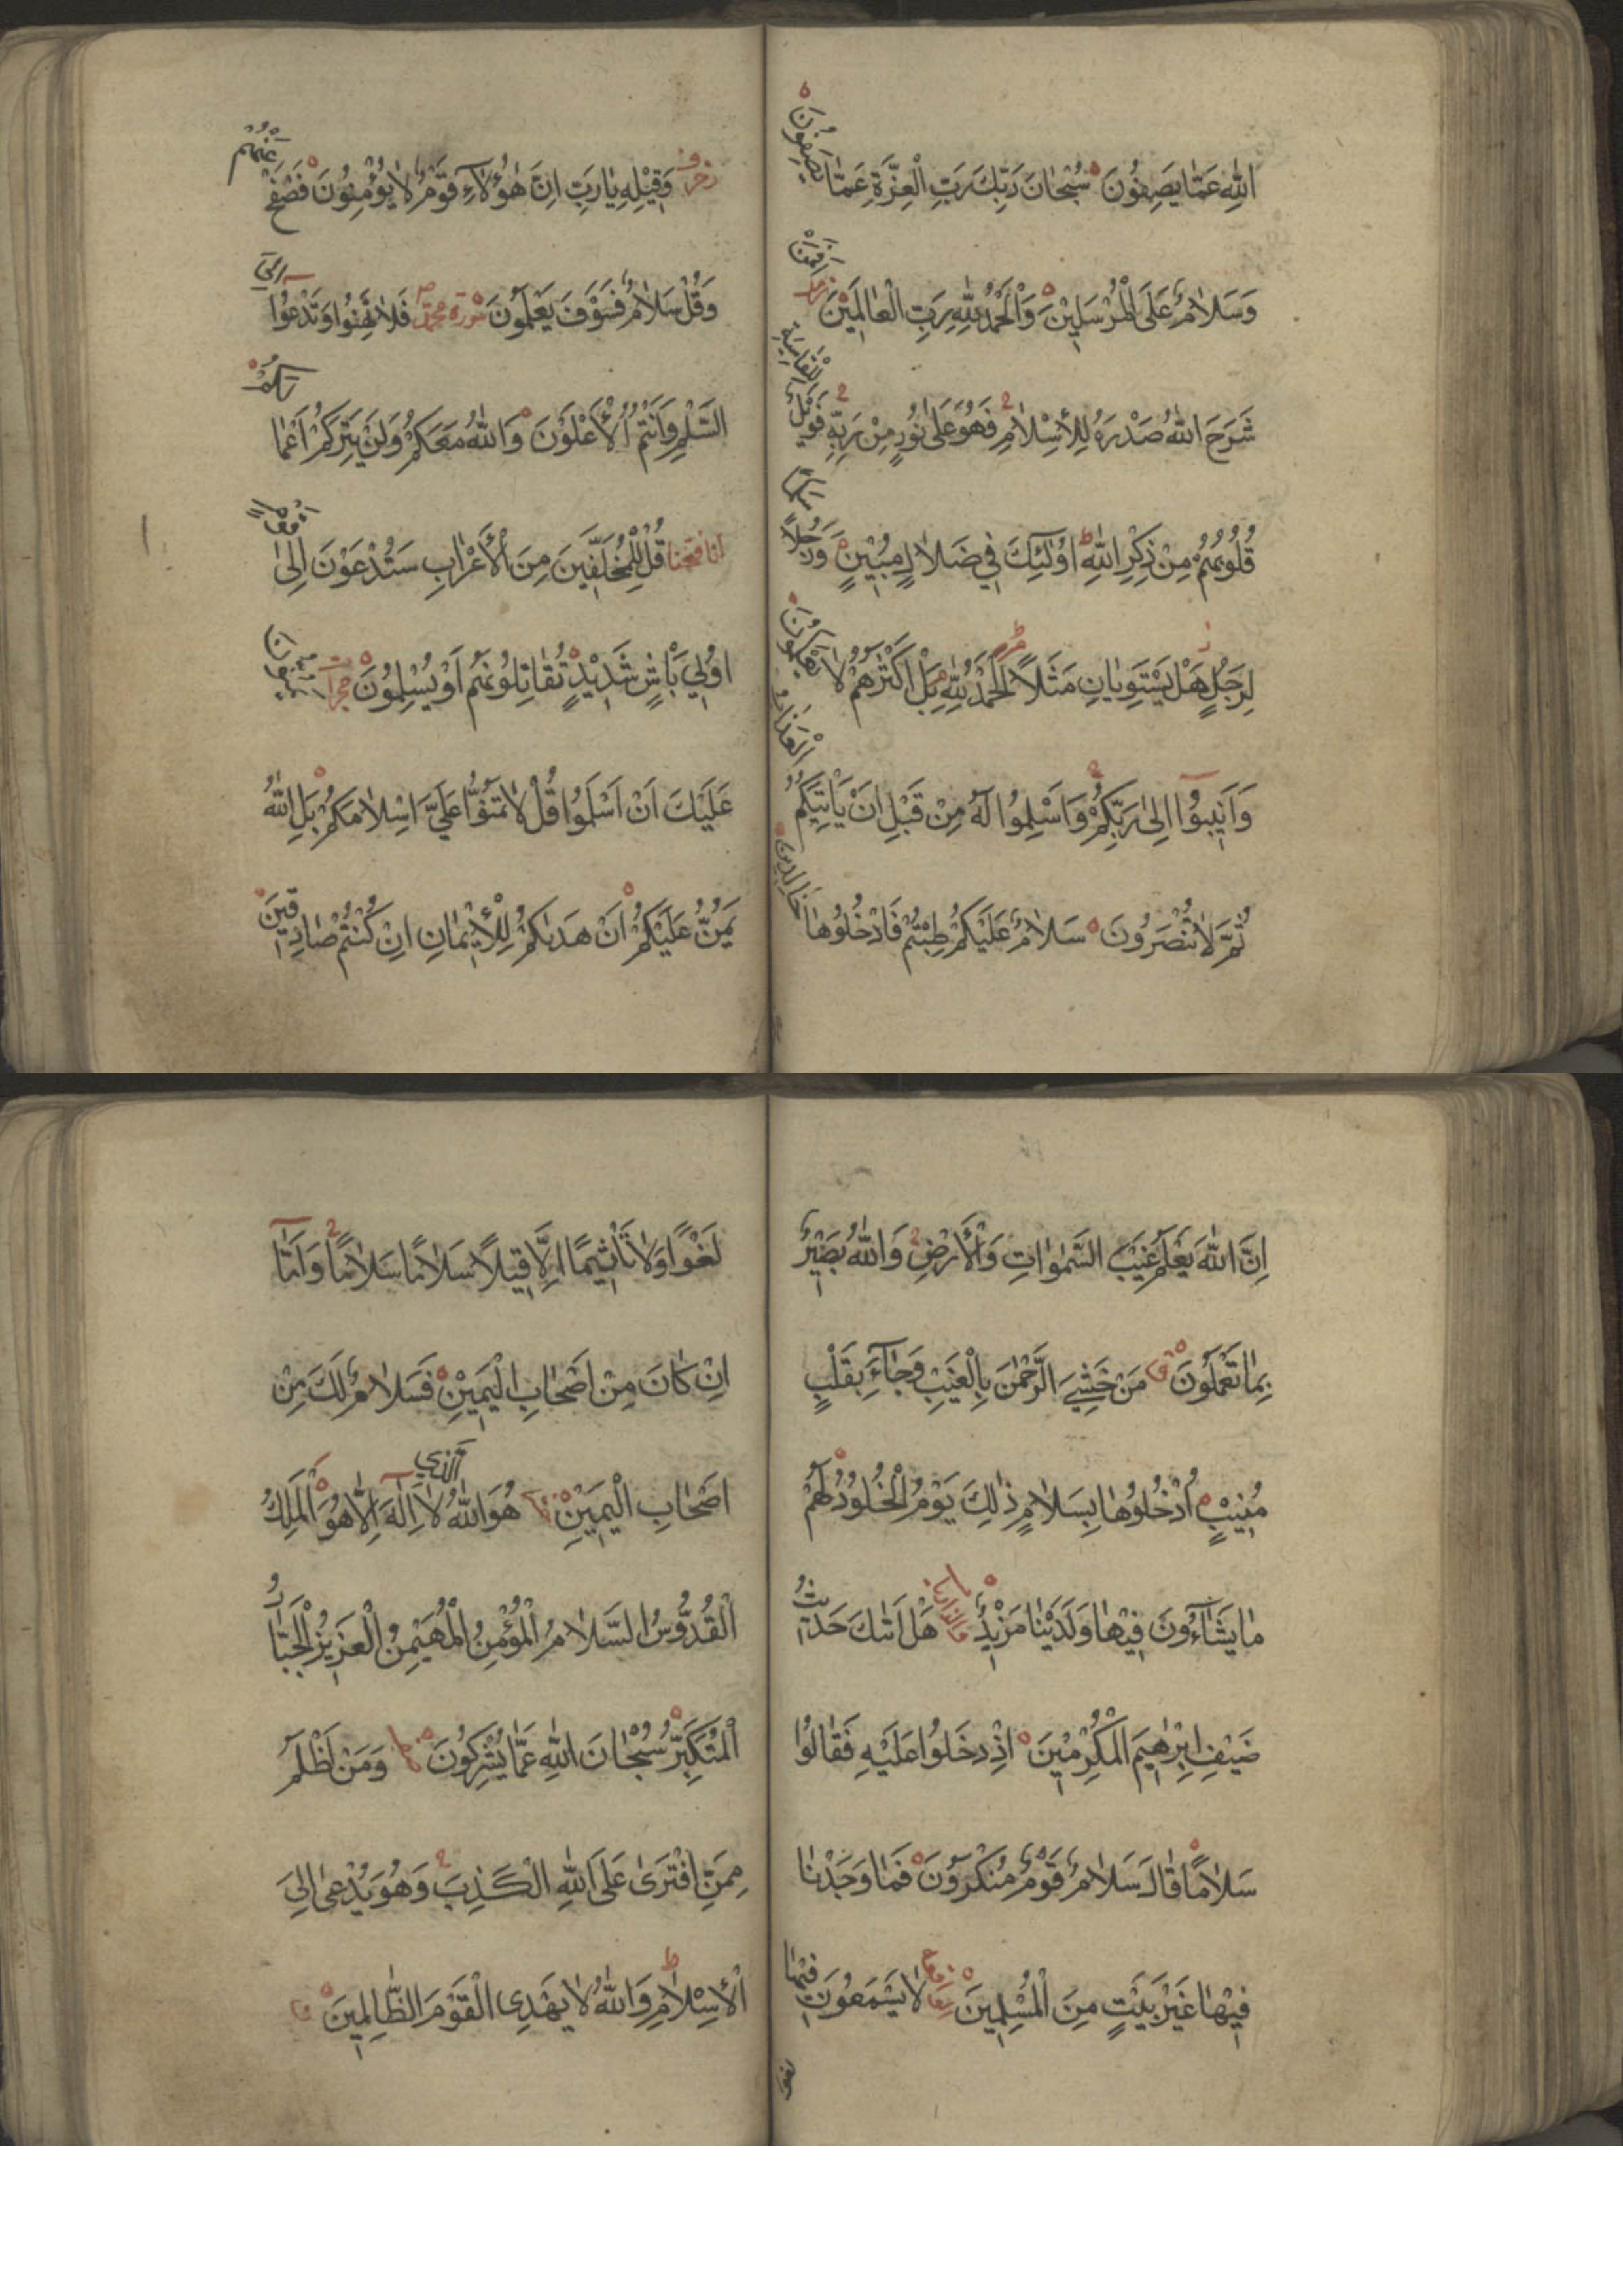 اللّٰهِ عَمَّا يَصِفُونَ سُبْحَانَ رَبِّكَ رَبِّ الْعِزَّةِ عَمَّا يَصِفُونَ
وَسَلَامٌ عَلَى الْمُرْسَلِينَ وَالْحَمْدُ لِلّٰهِ رَبِّ الْعَالَمِينَ زمر اَفَمَنْ
شَرَحَ اللّٰهُ صَدْرَهُ لِلْاِسْلَامِ فَهُوَ عَلٰى نُورٍ مِنْ رَبِّهِ فَوَيْلٌ لِلْقَاسِيَةِ
قُلُوبُهُمْ مِنْ ذِكْرِ اللّٰهِ اُولٰئِكَ فِي ضَلَالٍ مُبِينٍ وَرَجُلًا سَلَمًا
لِرَجُلٍ هَلْ يَسْتَوِيَانِ مَثَلًا اَلْحَمْدُ لِلّٰهِ بَلْ اَكْثَرُهُمْ لَا يَعْلَمُونَ
وَاَنِيبُوا اِلٰى رَبِّكُمْ وَاَسْلِمُوا لَهُ مِنْ قَبْلِ اَنْ يَأْتِيَكُمُ الْعَذَابُ
ثُمَّ لَا تُنْصَرُونَ سَلَامٌ عَلَيْكُمْ طِبْتُمْ فَادْخُلُوهَا خَالِدِينَ
زخرف وَقِيلِهِ يَا رَبِّ اِنَّ هٰؤُلَاءِ قَوْمٌ لَا يُؤْمِنُونَ فَصْفَحْ عَنْهُمْ
وَقُلْ سَلَامٌ فَسَوْفَ يَعْلَمُونَ سورة محمد فَلَا تَهِنُوا وَتَدْعُوا اِلَى
السَّلْمِ وَاَنْتُمُ الْاَعْلَوْنَ وَاللّٰهُ مَعَكُمْ وَلَنْ يَتِرَكُمْ اَعْمَالَكُمْ
انا فتحنا قُلْ لِلْمُخَلَّفِينَ مِنَ الْاَعْرَابِ سَتُدْعَوْنَ اِلٰى قَوْمٍ
اُولِي بَأْسٍ شَدِيدٍ تُقَاتِلُونَهُمْ اَوْ يُسْلِمُونَ حجرات يَمُنُّونَ
عَلَيْكَ اَنْ اَسْلَمُوا قُلْ لَا تَمُنُّوا عَلَيَّ اِسْلَامَكُمْ بَلِ اللّٰهُ
يَمُنُّ عَلَيْكُمْ اَنْ هَدٰيكُمْ لِلْاِيمَانِ اِنْ كُنْتُمْ صَادِقِينَ
اِنَّ اللّٰهَ يَعْلَمُ غَيْبَ السَّمٰوَاتِ وَالْاَرْضِ وَاللّٰهُ بَصِيرٌ
بِمَا تَعْمَلُونَ ق مَنْ خَشِيَ الرَّحْمٰنَ بِالْغَيْبِ وَجَاءَ بِقَلْبٍ
مُنِيبٍ اُدْخُلُوهَا بِسَلَامٍ ذٰلِكَ يَوْمُ الْخُلُودِ لَهُمْ
مَا يَشَاءُونَ فِيهَا وَلَدَيْنَا مَزِيدٌ والذاريات هَلْ اَتٰيكَ حَدِيثُ
ضَيْفِ اِبْرٰهِيمَ الْمُكْرَمِينَ اِذْ دَخَلُوا عَلَيْهِ فَقَالُوا
سَلَامًا قَالَ سَلَامٌ قَوْمٌ مُنْكَرُونَ فَمَا وَجَدْنَا
فِيهَا غَيْرَ بَيْتٍ مِنَ الْمُسْلِمِينَ لَا يَسْمَعُونَ فِيهَا
لَغْوًا وَلَا تَأْثِيمًا اِلَّا قِيلًا سَلَامًا سَلَامًا وَاَمَّا
اِنْ كَانَ مِنْ اَصْحَابِ الْيَمِينِ فَسَلَامٌ لَكَ مِنْ
اَصْحَابِ الْيَمِينِ هُوَ اللّٰهُ الَّذِي لَا اِلٰهَ اِلَّا هُوَ الْمَلِكُ
الْقُدُّوسُ السَّلَامُ الْمُؤْمِنُ الْمُهَيْمِنُ الْعَزِيزُ الْجَبَّارُ
الْمُتَكَبِّرُ سُبْحَانَ اللّٰهِ عَمَّا يُشْرِكُونَ وَمَنْ اَظْلَمُ
مِمَّنِ افْتَرٰى عَلَى اللّٰهِ الْكَذِبَ وَهُوَ يُدْعٰى اِلَى
الْاِسْلَامِ وَاللّٰهُ لَا يَهْدِى الْقَوْمَ الظَّالِمِينَ